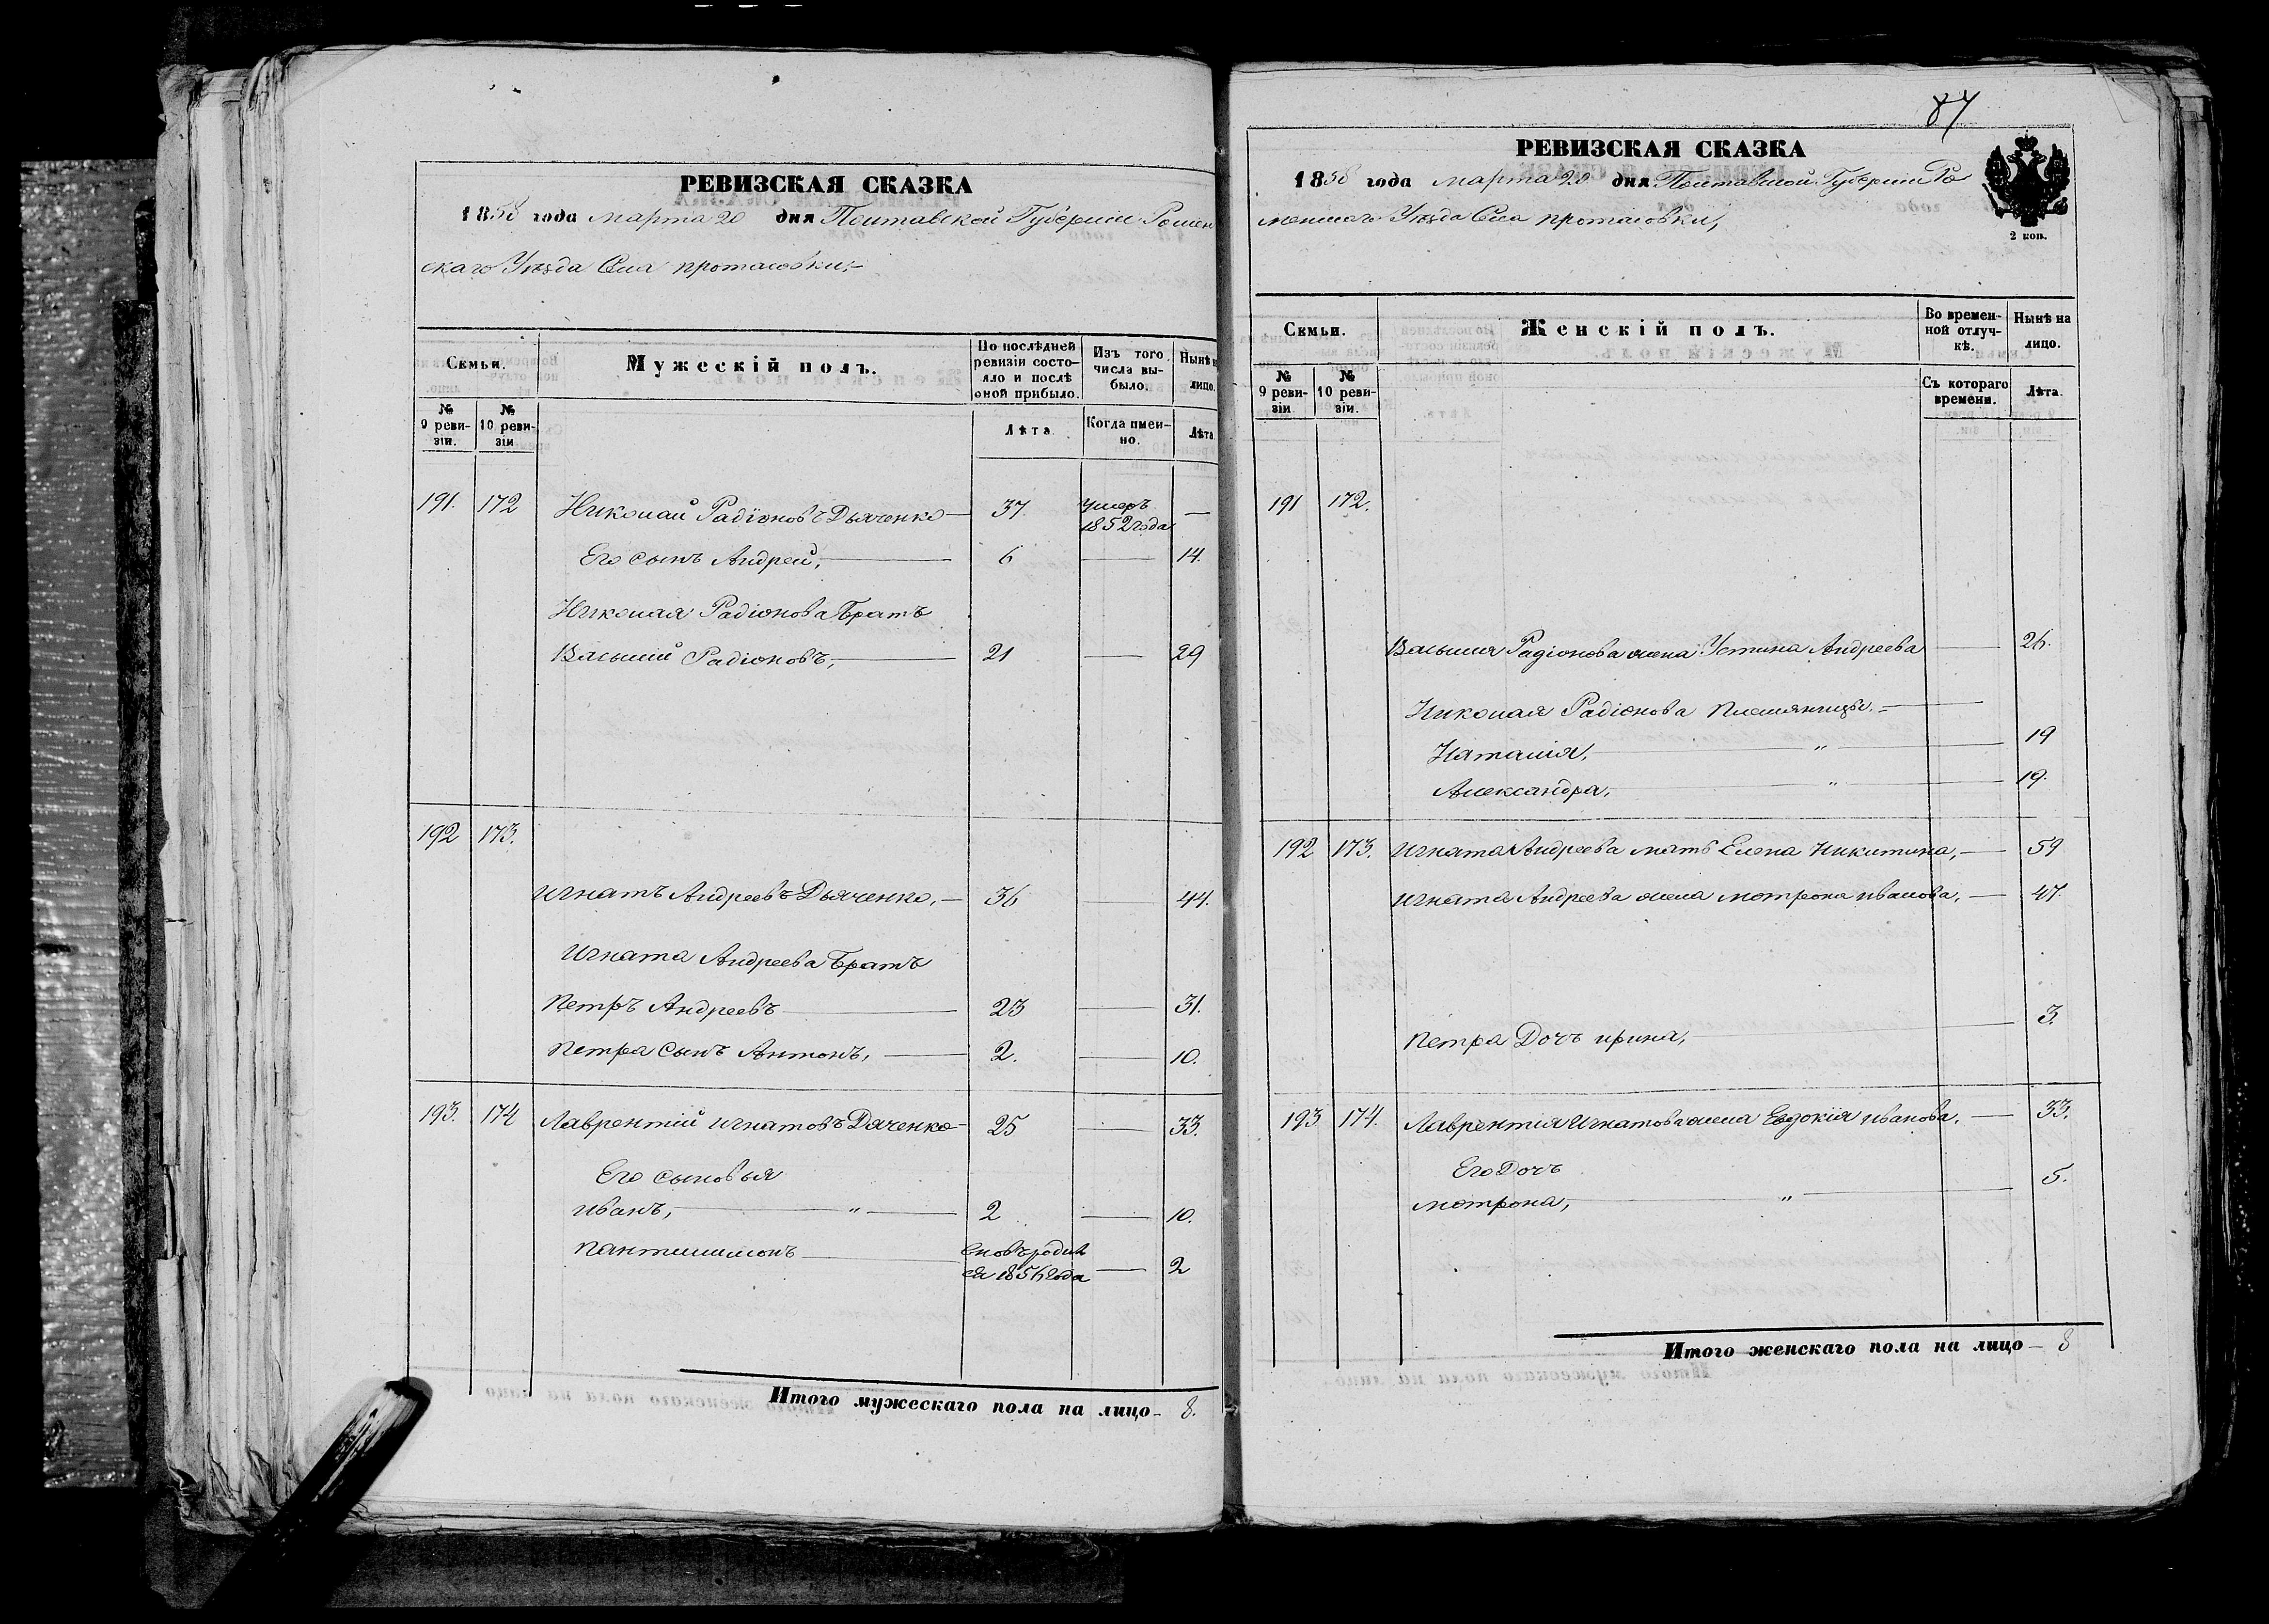 РЕВИЗСКАЯ СКАЗКА
1858 года марта 20 дня Полтавской Губернии Ромен
скаго Уѣзда Села протасовки,
Семьи.
Мужескій полъ.
По послѣдней ревизіи состояло и послѣ оной прибыло.
Изъ того числа выбыло.
Нынѣ на лицо.
№ 9 ревизіи.
№ 10 ревизіи
Лѣта.
Когда именно.
Лѣта
191. 172 Николай Радіоновъ Дьяченко — 37 умеръ 1852 года —
Его сынъ Андрей, — 6 — 14.
Николая Радіонова Братъ
Василій Радіоновъ, — 21 — 29
192 173.
Игнатъ Андреевъ Дьяченко, — 36 — 44.
Игната Андреева Братъ
Петръ Андреевъ — 23 — 31.
Петра Сынъ Антонъ, — 2. — 10.
193. 174 Лаврентій Игнатовъ Дяченко — 25 — 33.
Его сыновья
Иванъ, — " — 2 — 10.
Пантилимонъ — Сновъ родил
ся 1856 года — 2
Итого мужескаго пола на лицо — 8.
87
РЕВИЗСКАЯ СКАЗКА
1858 года марта 20 дня Полтавской Губерніи Ро
менскаго Уѣзда Села протасовки,
2 коп.
Семьи.
Женскій полъ.
Во временной отлучкѣ.
Нынѣ на лицо.
№ 9 ревизіи
№ 10 ревизіи.
Съ котораго времени.
Лѣта.
191 172.
Василия Радіонова жена Устина Андреева — 26.
Николая Радіонова племянницы. —
Наталия, — " — 19
Александра, — " — 19.
192 173. Игната Андреева мать Елена Никитина, — 59
Игната Андреева жена мотрона иванова, — 47.
Петра Дочь ирина, — 3.
193 174. Лаврентия Игнатова жена Евдокія иванова. — 33.
Его Дочь
мотрона, — " — 5.
Итого женскаго пола на лицо — 8